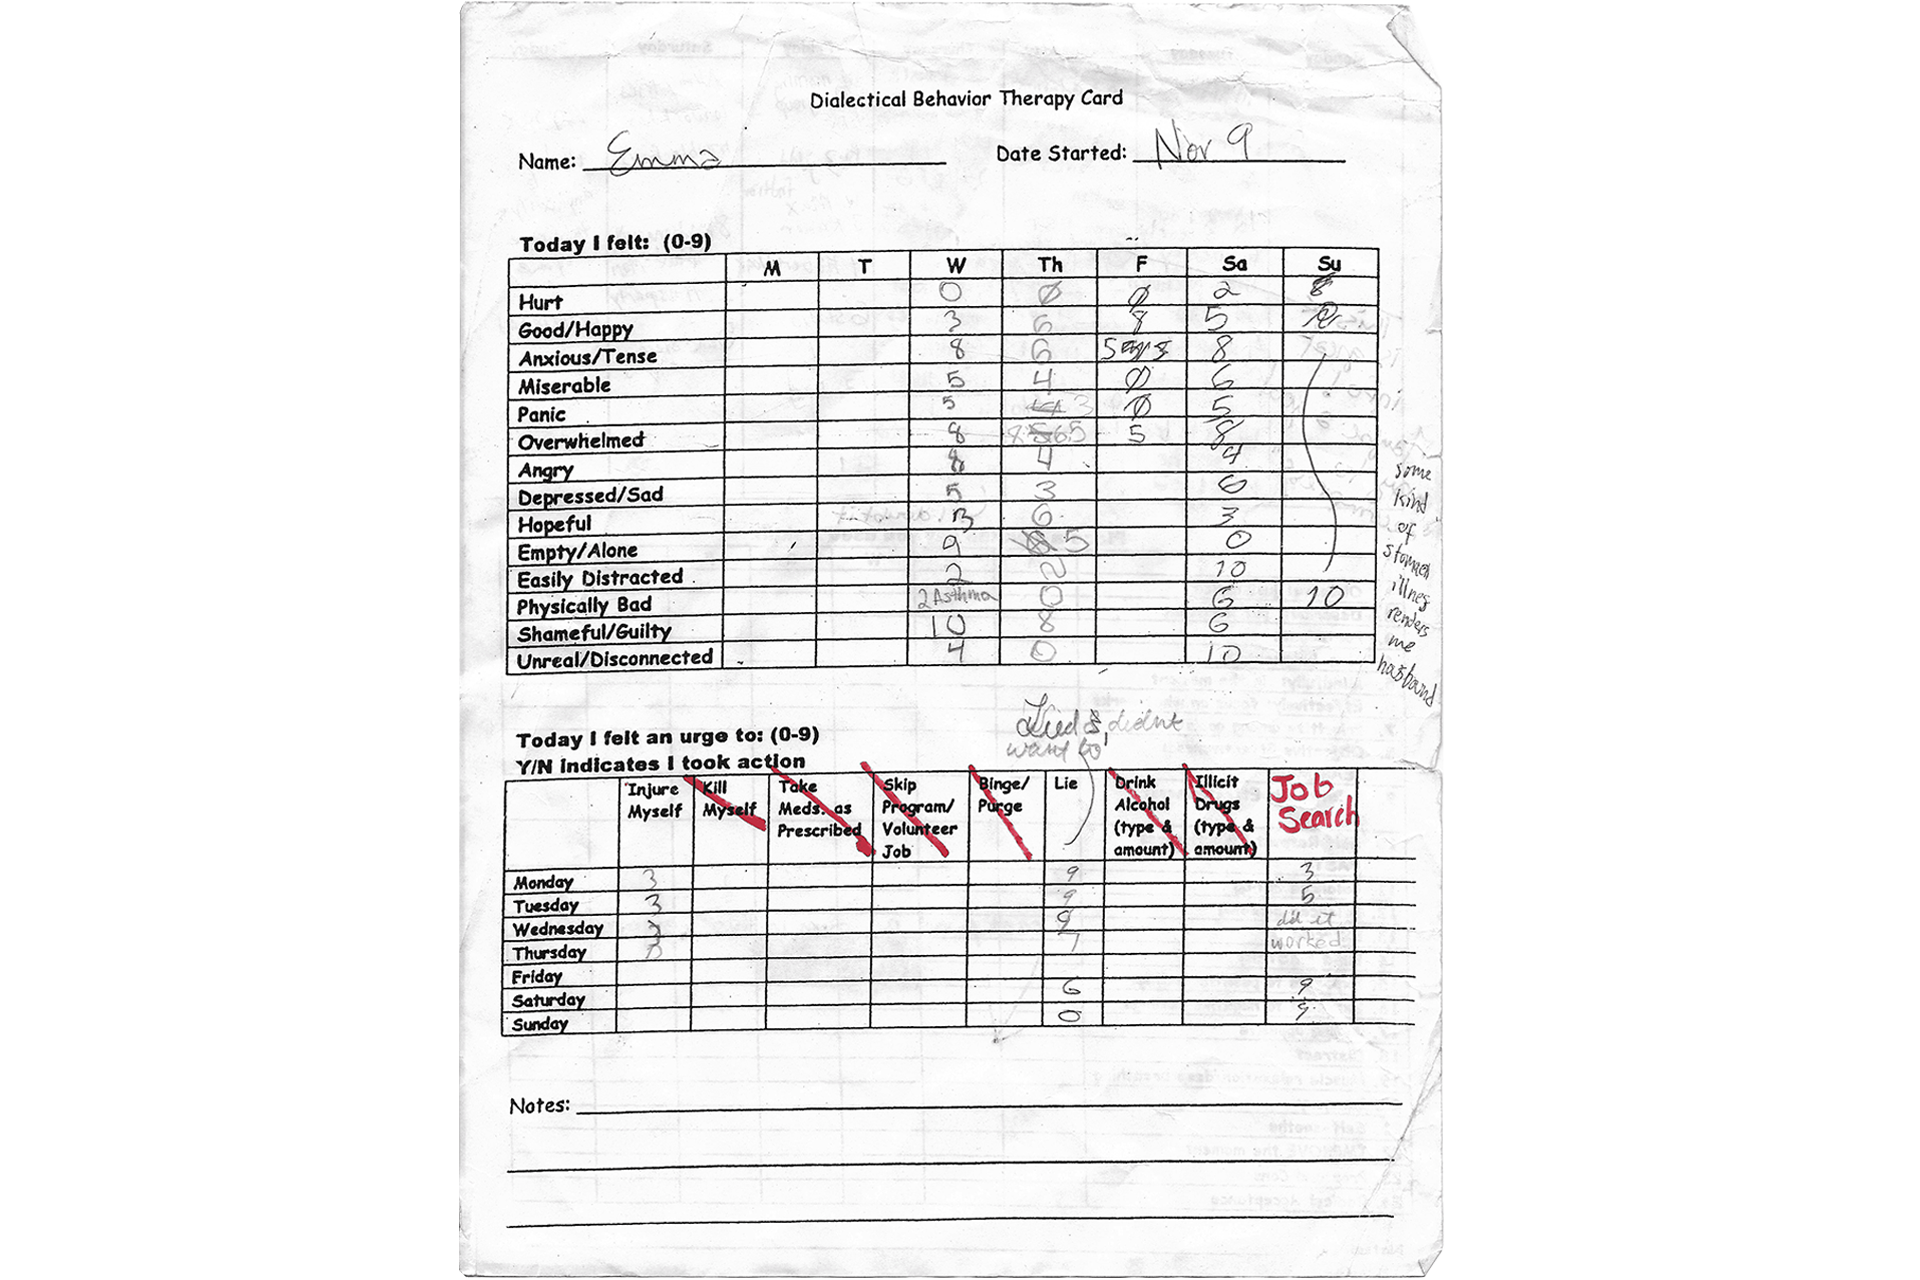 Dialectical Behavior Therapy Card
Name: Emma Date Started: Nov 9
Today I felt: (0-9)
M T W Th F Sa Su
Hurt 0 0 0 2 8
Good/Happy 3 6 8 5
Anxious/Tense 8 6 5 8
Miserable 5 4 0 6
Panic 5 3 0 5
Overwhelmed 8 5 5
Angry 8 4 4
Depressed/Sad 5 3 6
Hopeful 3 6 3
Empty/Alone 9 5 0
Easily Distracted 2 2 10
Physically Bad 2 Asthma 0 6 10
Shameful/Guilty 10 8 6
Unreal/Disconnected 4 0 10
some
kind
of
stomach
illnes
renders
me
hasband
Lied &, didnt
want to
Today I felt an urge to: (0-9)
Y/N indicates I took action
Injure Myself Kill Myself Take Meds. as Prescribed Skip Program/ Volunteer Job Binge/ Purge Lie Drink Alcohol (type & amount) Illicit Drugs (type & amount) Job Search
Monday 3 9 3
Tuesday 3 9 5
Wednesday 9 did it
Thursday 7 worked
Friday
Saturday 6 9
Sunday 0 9
Notes: